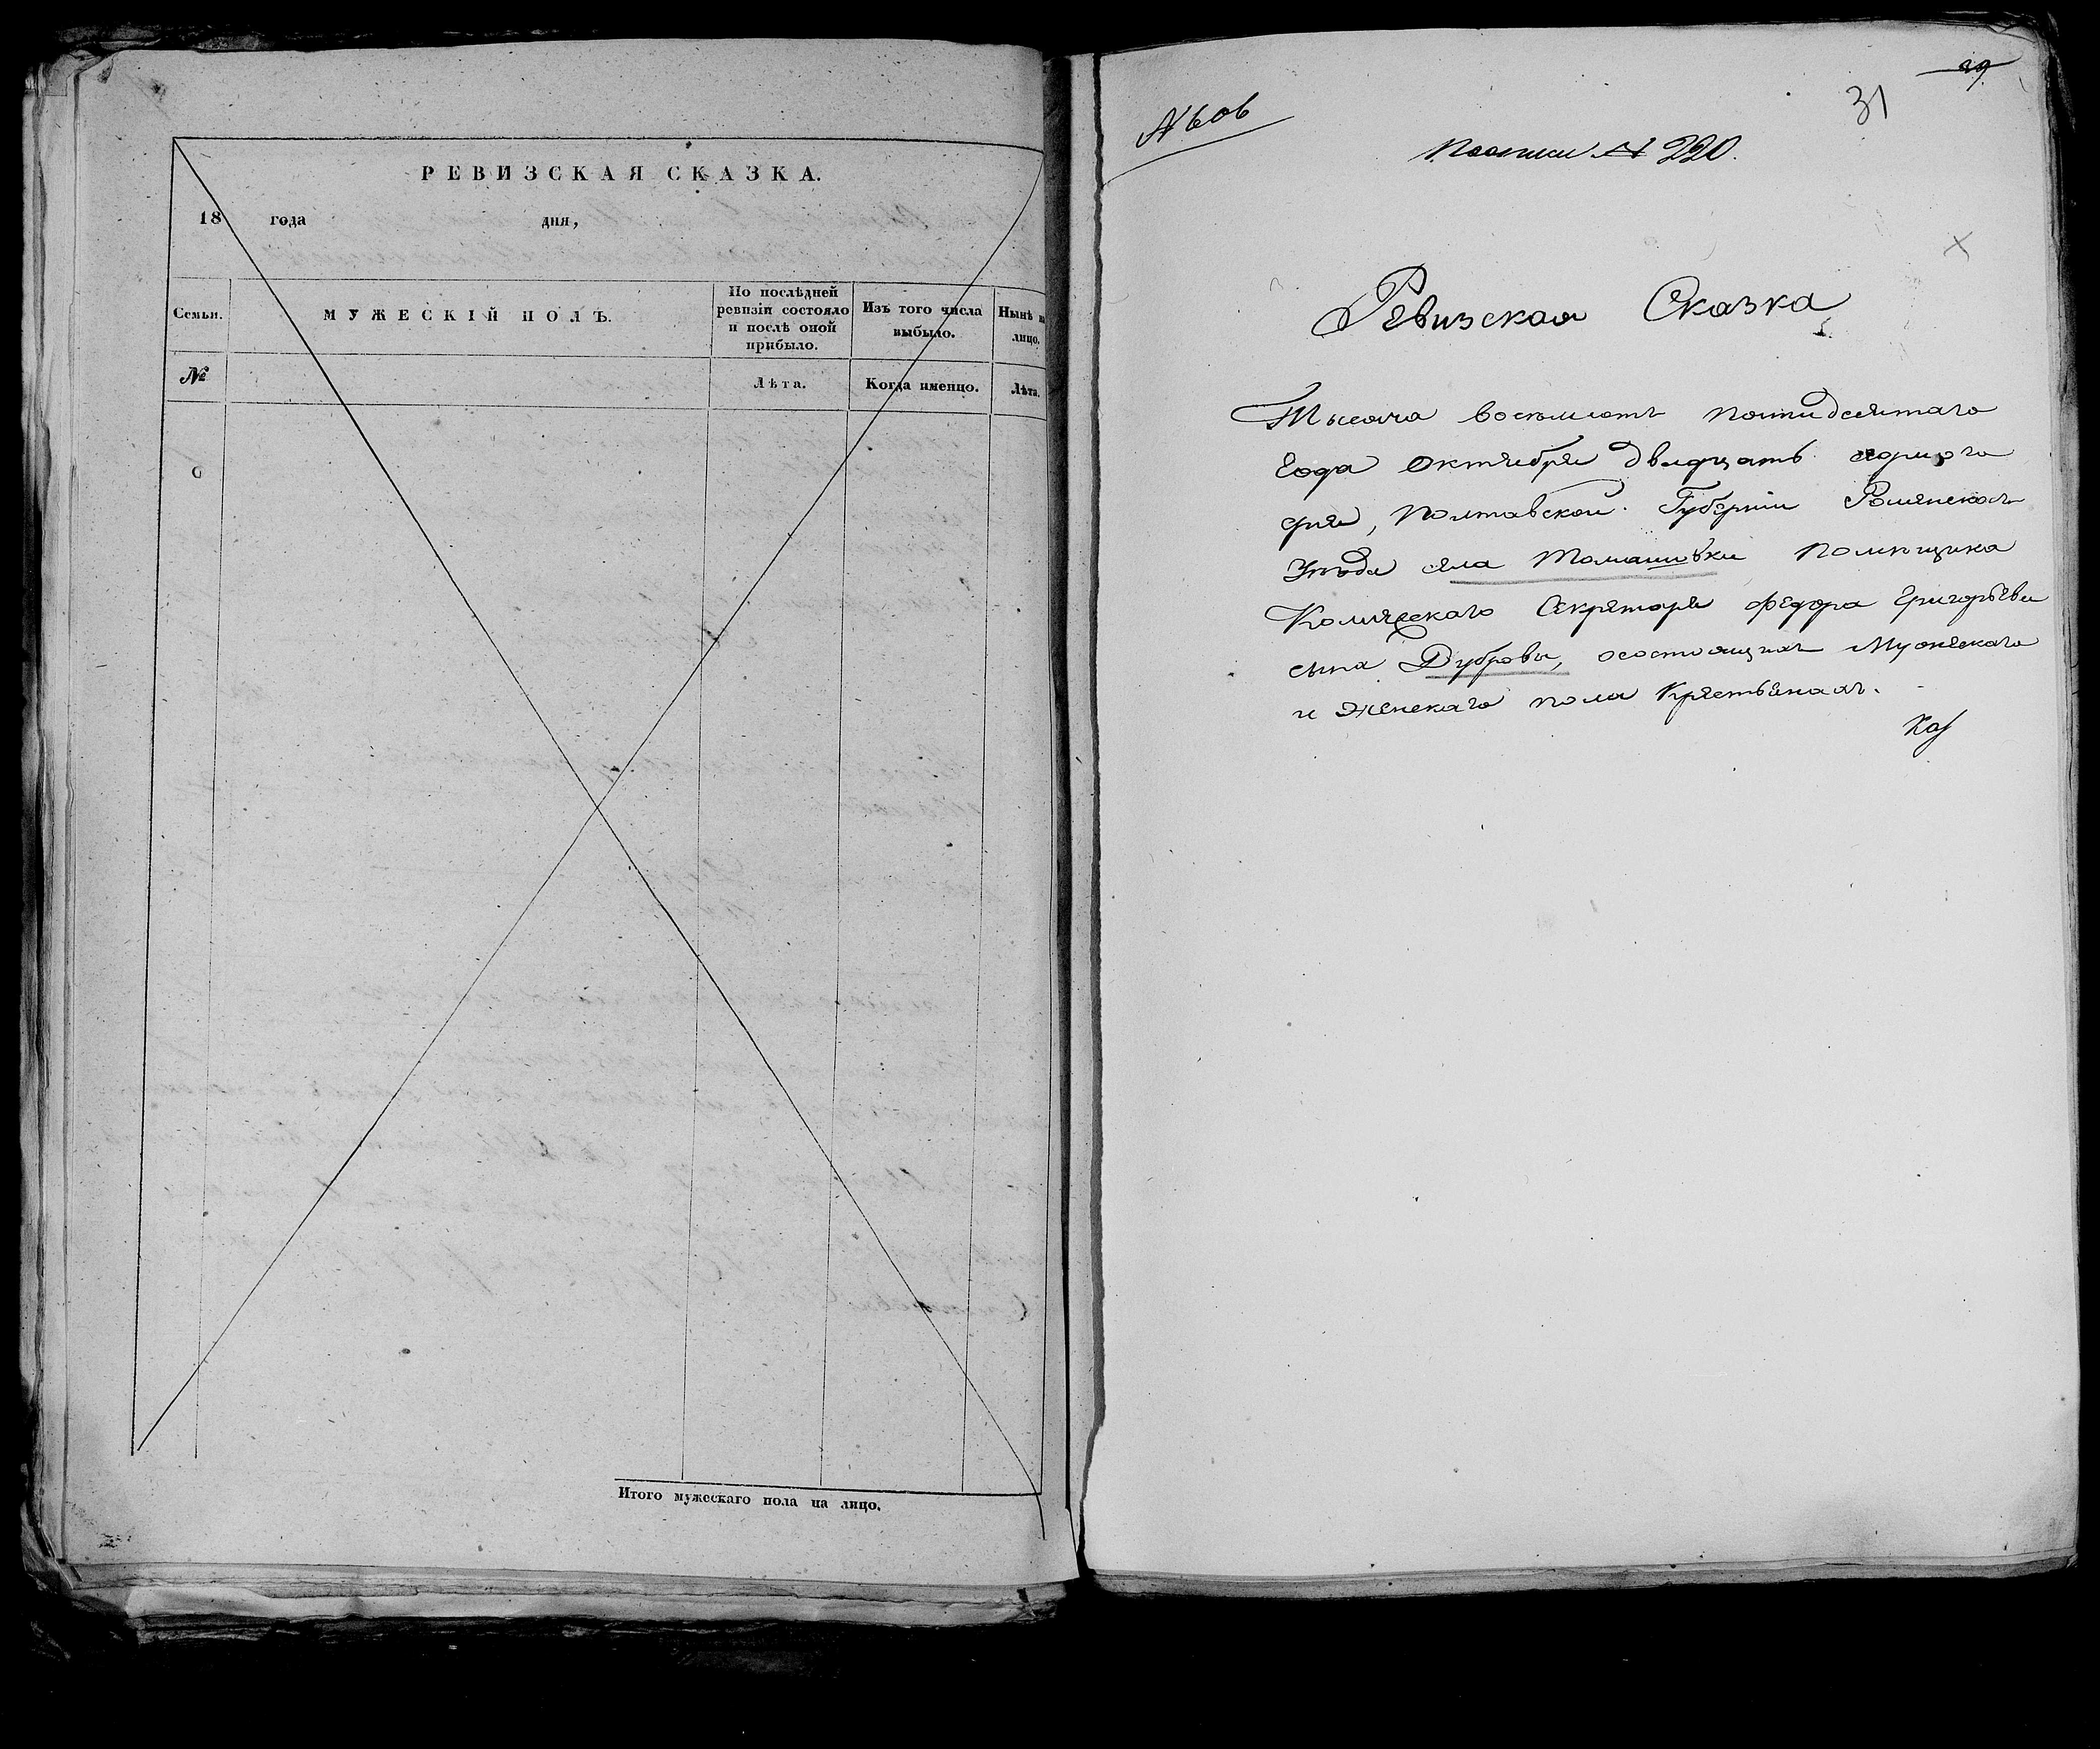 РЕВИЗСКАЯ СКАЗКА.
18 года дня,
Семьи. МУЖЕСКІЙ ПОЛЪ. По послѣдней ревизіи состояло и послѣ оной прибыло. Изъ того числа выбыло. Нынѣ на лицо.
№ Лѣта. Когда именно. Лѣта.
Итого мужескаго пола на лицо.
29
31
№ 606
№ 220.
Ревизская Сказка
Тысяча восемьсотъ пятидесятаго
года Октября двадцать
дня, Полтавской Губерніи Роменскаго
Уѣзда села Томашовки помѣщика
Колежскаго Секретаря Федора Григорьева
сына Дубровы, осостоящихъ Мужескаго
и женскаго пола Крестьянахъ.